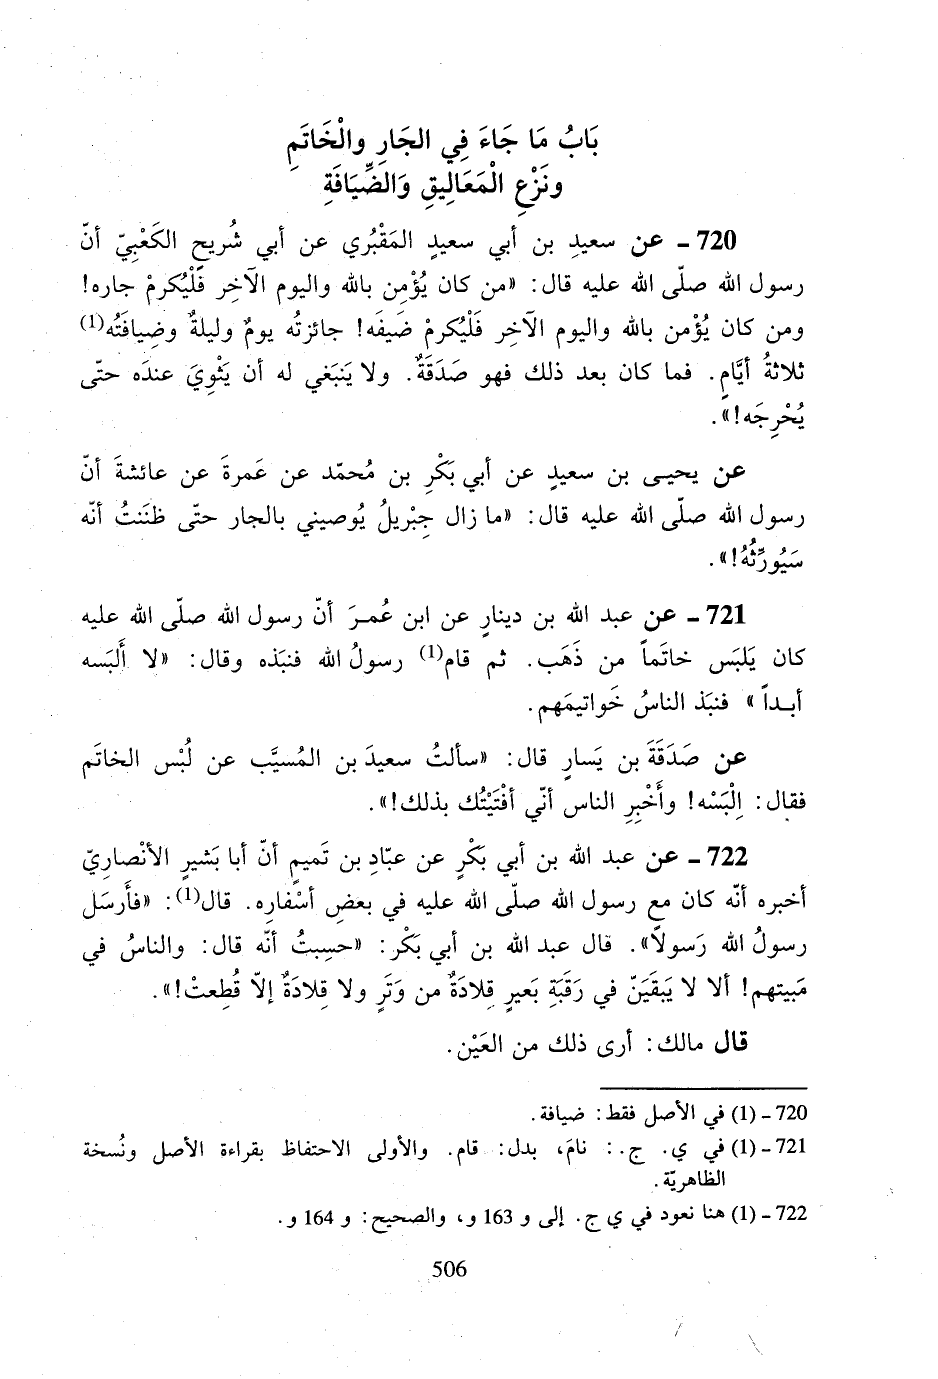 بَابُ مَا جَاءَ فِي الجَارِ والْخَاتَمِ
ونَزْعِ الْمَعَالِيقِ وَالضِّيَافَةِ
720 ـ عن سعيدِ بن أبي سعيدٍ المَقْبُري عن أبي شُريحٍ الكَعْبِيّ أنّ
رسول الله صلّى الله عليه قال: «من كان يُؤْمِن بالله واليوم الآخِر فَلْيُكرمْ جاره!
ومن كان يُؤْمن بالله واليوم الآخِر فَلْيُكرمْ ضَيفَه! جائزتُه يومٌ وليلةٌ وضِيافَتُه(1)
ثلاثةُ أيَّامٍ. فما كان بعد ذلك فهو صَدَقَةٌ. ولا يَنبَغي له أن يَثْوِيَ عندَه حتّى
يُحْرِجَه!».
عن يحيـى بن سعيدٍ عن أبي بَكْرِ بن مُحمّد عن عَمرةَ عن عائشةَ أنّ
رسول الله صلّى الله عليه قال: «ما زال جِبْريلُ يُوصيني بالجار حتّى ظنَنتُ أنّه
سَيُورِّثُهُ!».
721 ـ عن عبد الله بن دينارٍ عن ابن عُمـرَ أنّ رسول الله صلّى الله عليه
كان يَلبَس خاتَماً من ذَهَب. ثم قام(1) رسولُ الله فنبَذه وقال: «لا أَلبَسه
أبـداً» فنبَذ الناسُ خَواتيمَهم.
عن صَدَقَةَ بن يَسارٍ قال: «سألتُ سعيدَ بن المُسيَّب عن لُبْس الخاتَم
فقال: اِلْبَسْه! وأَخْبِرِ الناس أنّي أفْتَيْتُك بذلك!».
722 ـ عن عبد الله بن أبي بَكْرٍ عن عبّادِ بن تَميمٍ أنّ أبا بَشيرٍ الأنْصاريّ
أخبره أنّه كان مع رسول الله صلّى الله عليه في بعض أسْفاره. قال(1): «فأَرسَل
رسولُ الله رَسولاً». قال عبد الله بن أبي بَكْر: «حسِبتُ أنّه قال: والناسُ في
مَبيتهم! ألا لا يَبقَيَنّ في رَقَبَةِ بَعيرٍ قِلادَةٌ من وَتَرٍ ولا قِلادَةٌ إلاّ قُطعتْ!».
قال مالك: أرى ذلك من العَيْن.
720 ـ (1) في الأصل فقط: ضيافة.
721 ـ (1) في ي. ج.: نامَ، بدل: قام. والأولى الاحتفاظ بقراءة الأصل ونُسخة
الظاهريّة.
722 ـ (1) هنا نعود في ي ج. إلى و 163 و، والصحيح: و 164 و.
506